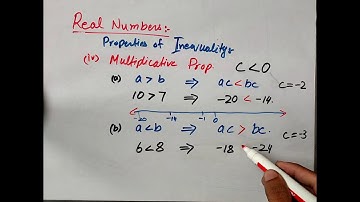 Real Numbers:
Properties of Inequality
(iv) Multiplicative Prop. c<0
(a) a>b ⇒ ac < bc c=-2
10>7 ⇒ -20 < -14.
-20 -14 -1 0
(b) a<b ⇒ ac > bc. c=-3
6<8 ⇒ -18 -24